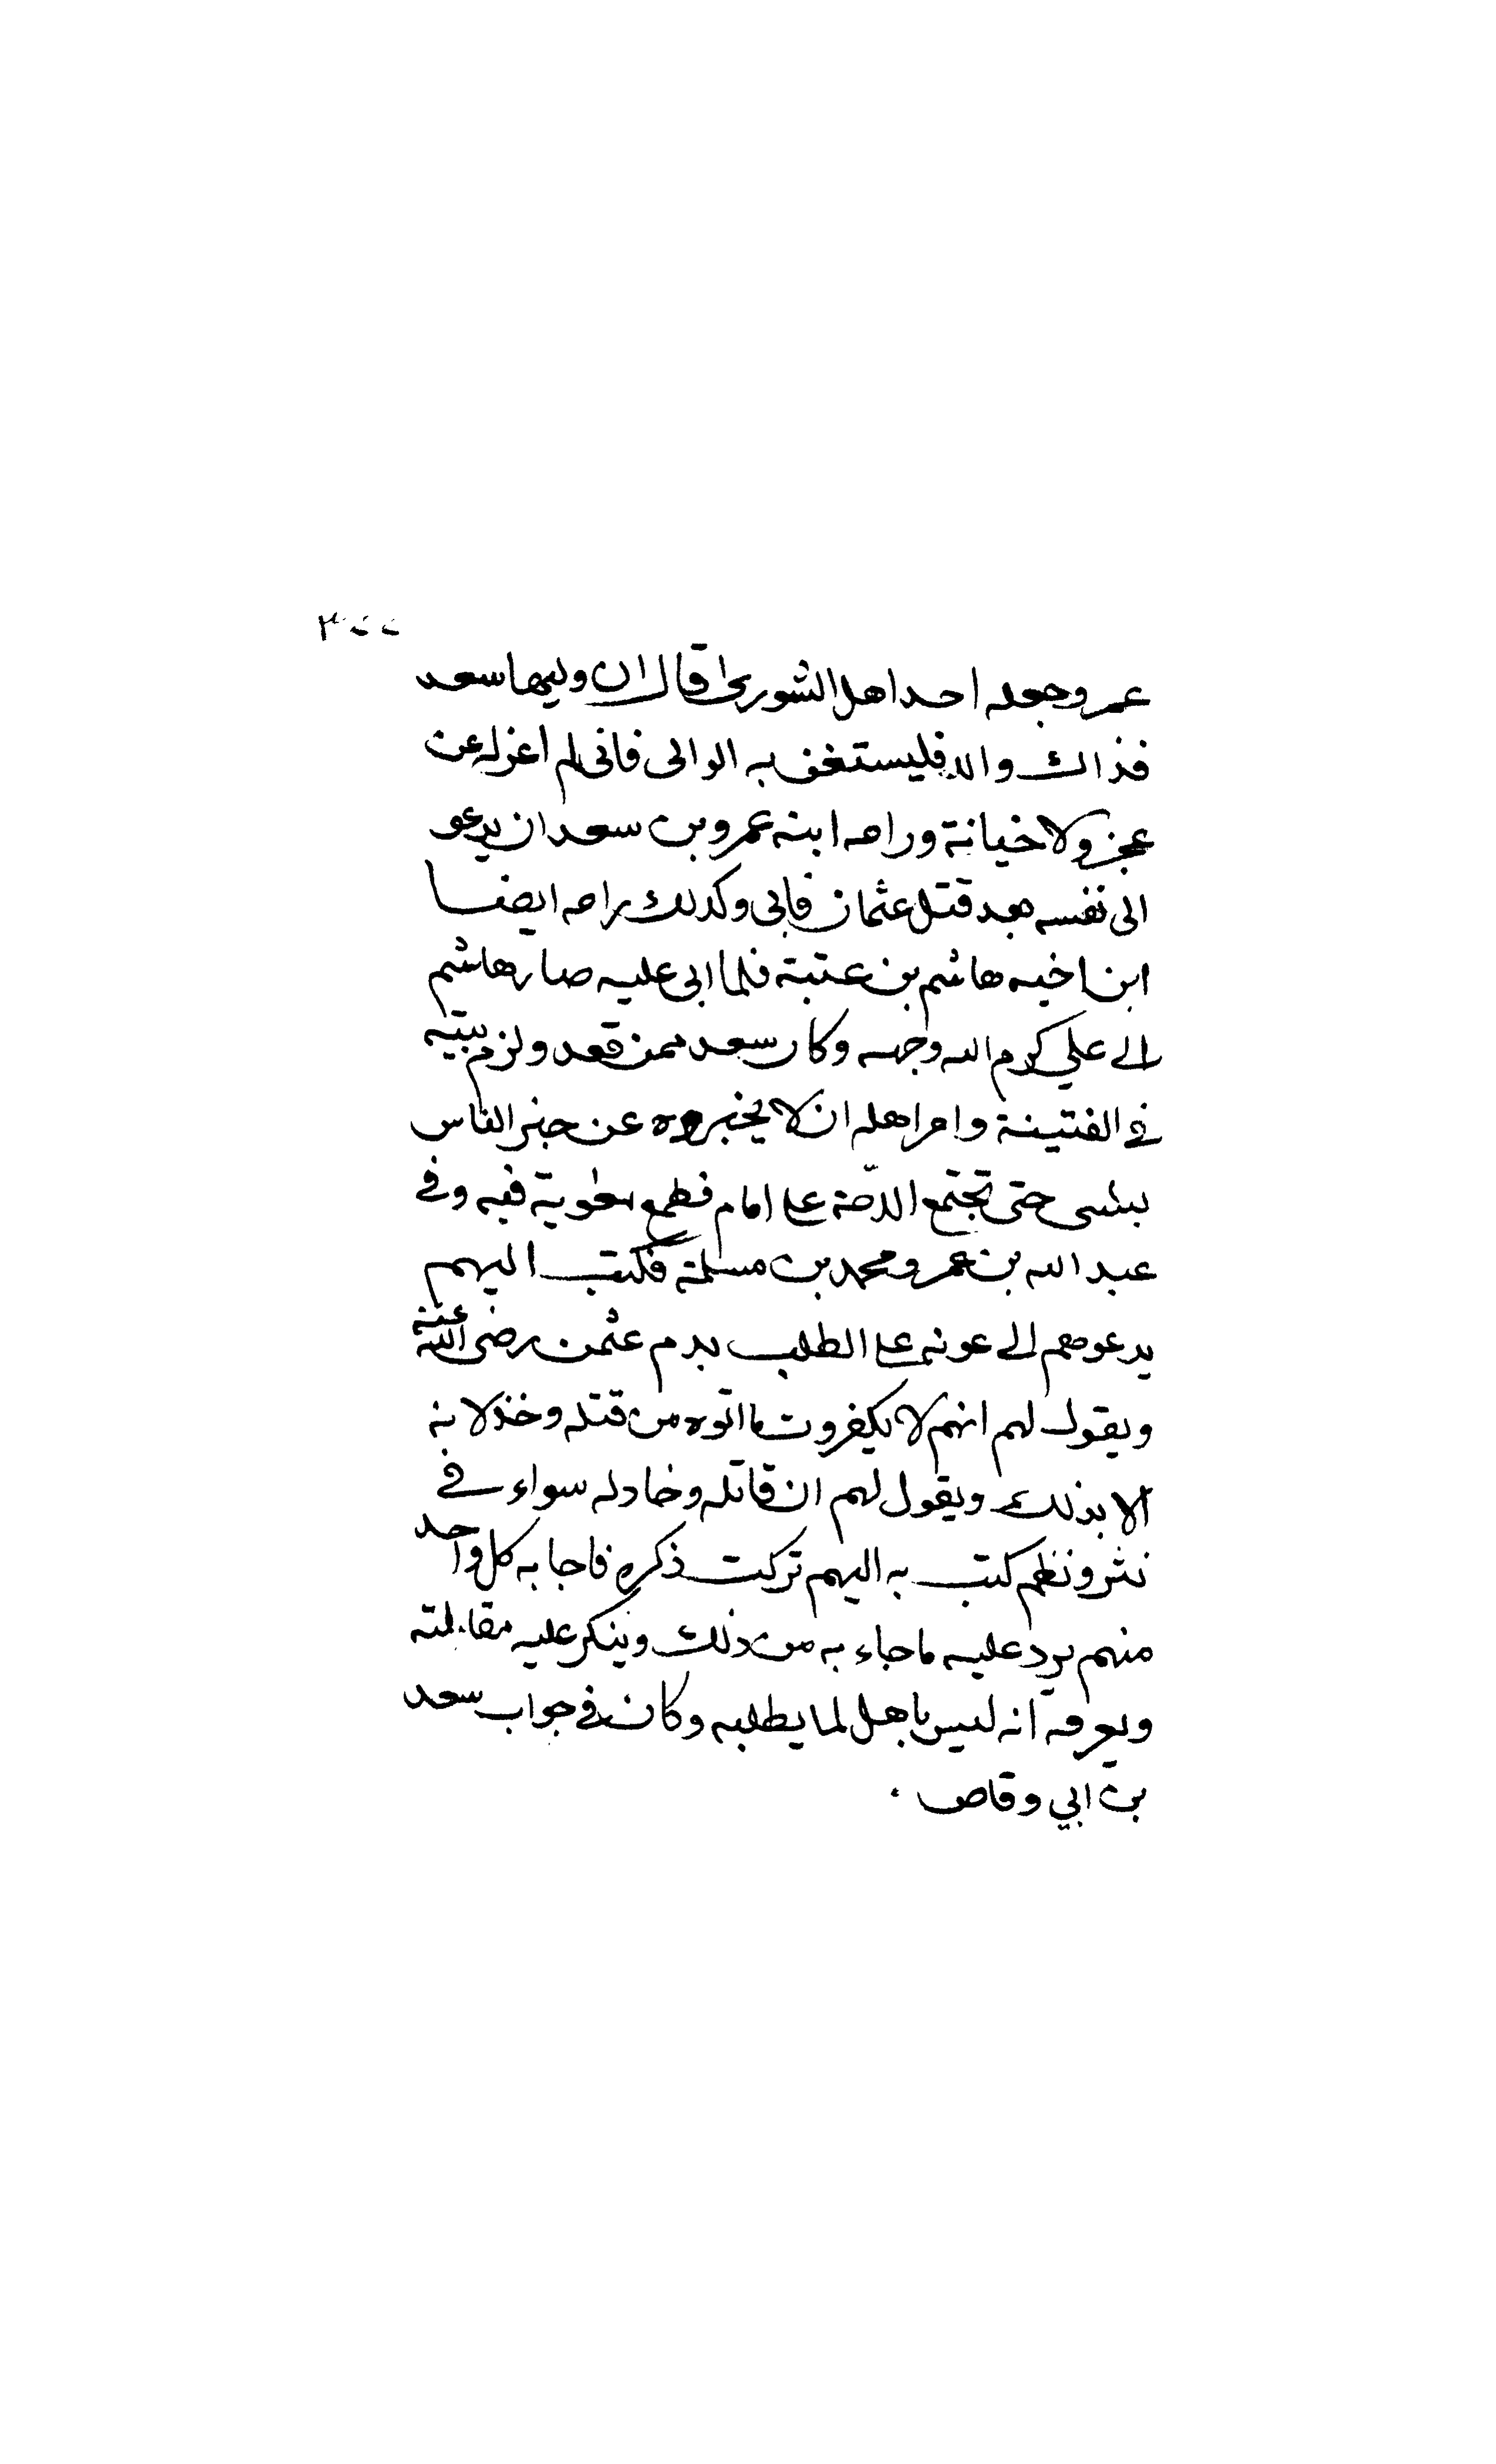 عمر وجعله احد اهل الشورى قال ان وليها سعد
فذاك والا فليستعن به الوالى فانى لم اعزله عن
عجز ولا خيانة ورامه ابنه عمرو بن سعد ان يدعو
الى نفسه بعد قتل عثمان فابى وكذلك رامه ايضا
ابن اخيه هاشم بن عتبة فلما ابى عليه صار هاشم
الى علي كرم الله وجهه وكان سعد ممن قعد ولزم بيته
في الفتينة وامر اهله ان لا يخبروه عن خبر الناس
بشى حتى تجتمع الامة على امام فطمع معوية فيه وفى
عبد الله بن عمر ومحمد بن مسلمة فكتب اليهم
يدعوهم الى عونه على الطلب بدم عثمن رضى الله عنه
ويقول لهم انهم لا يكفرون ما اتوه من قتله وخذلانه
الا بذلك ويقول لهم ان قاتله وخاذله سواء في
نثر ونظم كتب به اليهم تركت ذكره فاجابه كل واحد
منهم يرد عليه ما جاء به من ذلك وينكر عليه مقابلته
ويعرفه انه ليس باهل لما يطلبه وكان في جواب سعد
بن ابي وقاص .